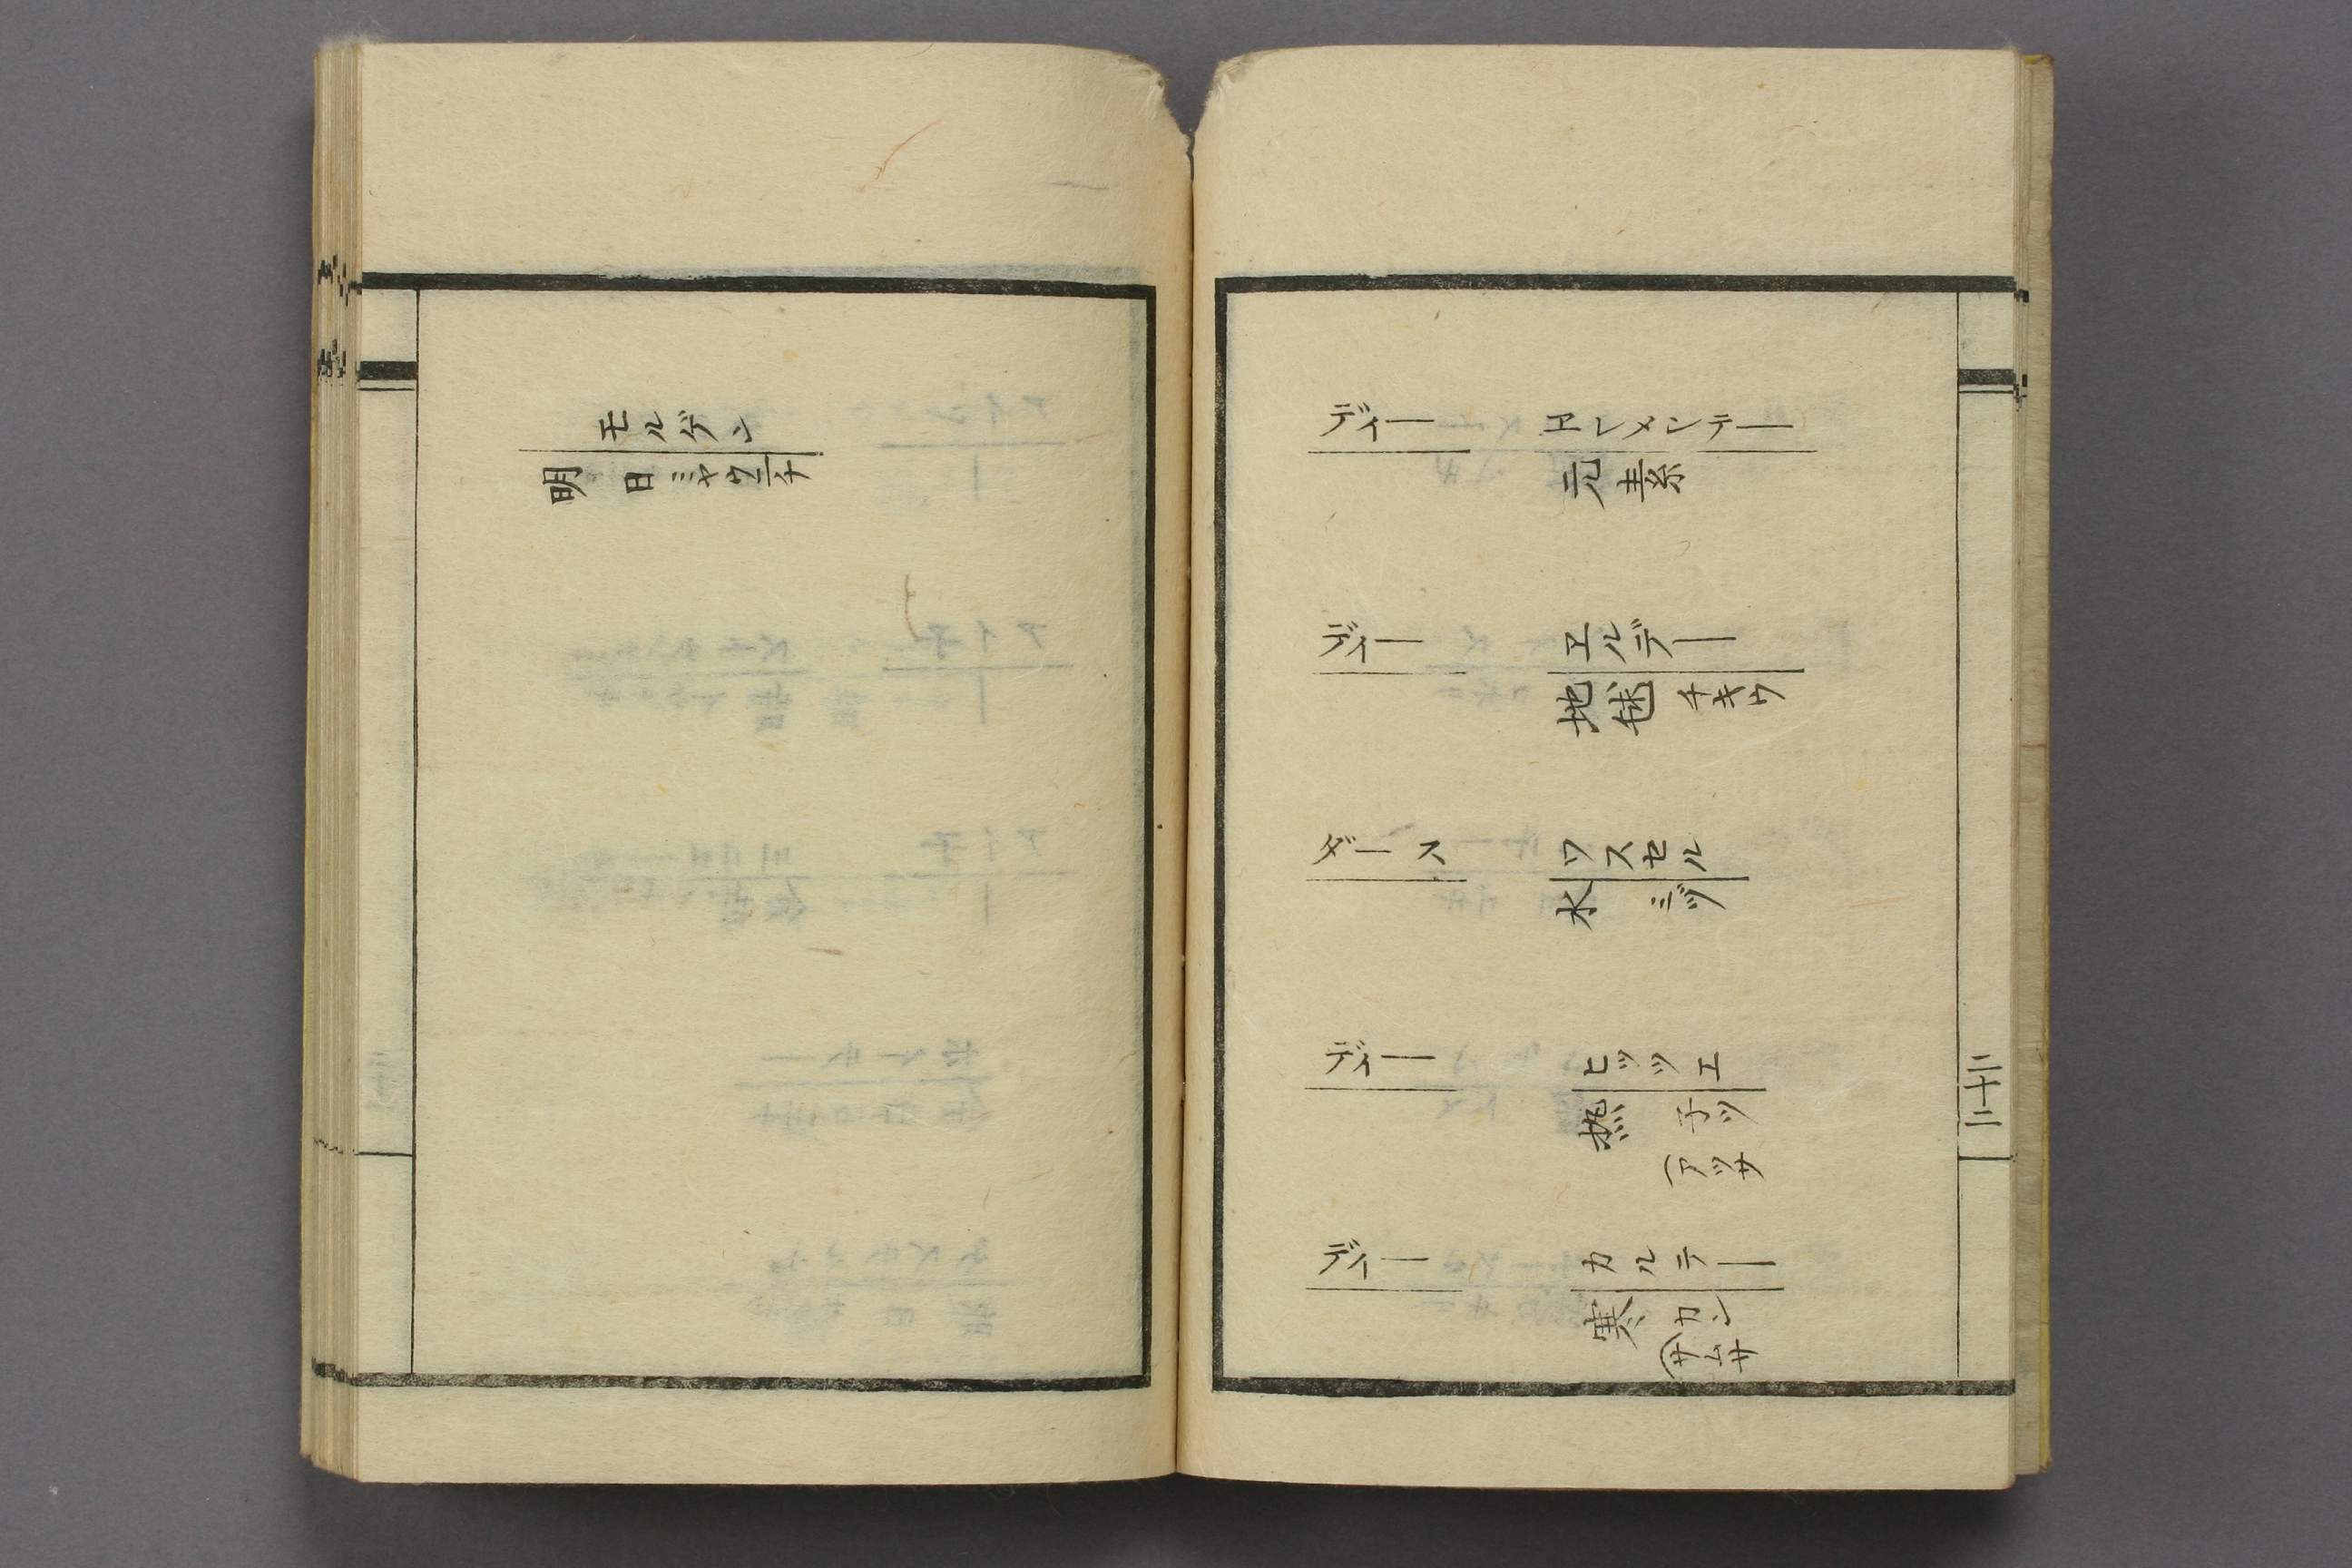 モルゲン
明日 ミヤウニチ
ディー ヱレメンテー
元素
ディー ヱルデー
地毬 チキウ
ダース ワスセル
水 ミヅ
ディー ヒッツエ
熱 子ツ
(アツサ
ディー カルテー
寒 カン
(サムサ
二十二